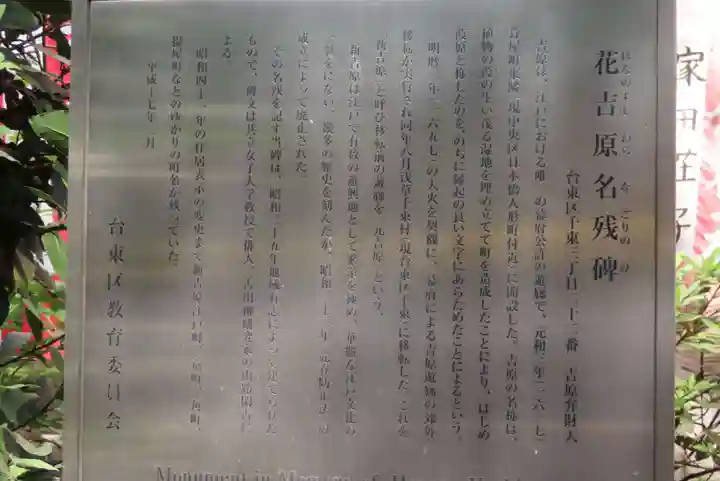 花吉原名残碑
はなのよしわらなごりのひ
台東区千東三丁目二十二番 吉原弁財天
吉原は、江戸における唯一の幕府公許の遊廓で、元和三年(一六一七)
葺屋町東隣(現中央区日本橋人形町付近)に開設した。吉原の名称は、
植物の葭の生い茂る湿地を埋め立てて町を造成したことにより、はじめ
葭原と称したのを、のちに縁起の良い文字にあらためたことによるという。
明暦三年(一六五七)の大火を契機に、幕府による吉原遊廓の郊外
移転が実行され同年八月浅草千束村(現台東区千束)に移転した。これを
「新吉原」と呼び移転前の遊廓を「元吉原」という。
新吉原は江戸で有数の遊興地として繁栄を極め、華麗な江戸文化の
一翼をにない、幾多の歴史を刻んだが、昭和三十三年「売春防止法」の
成立によって廃止された。
その名残を記す当碑は、昭和三十五年地域有志によって建てられた
もので、碑文は共立女子大学教授で俳人、古川柳研究家の山路閑古に
よる。
昭和四十一年の住居表示の変更まで新吉原江戸町、京町、角町、
揚屋町などのゆかりの町名が残っていた。
平成十七年 月
台東区教育委員会
Monument in Memory